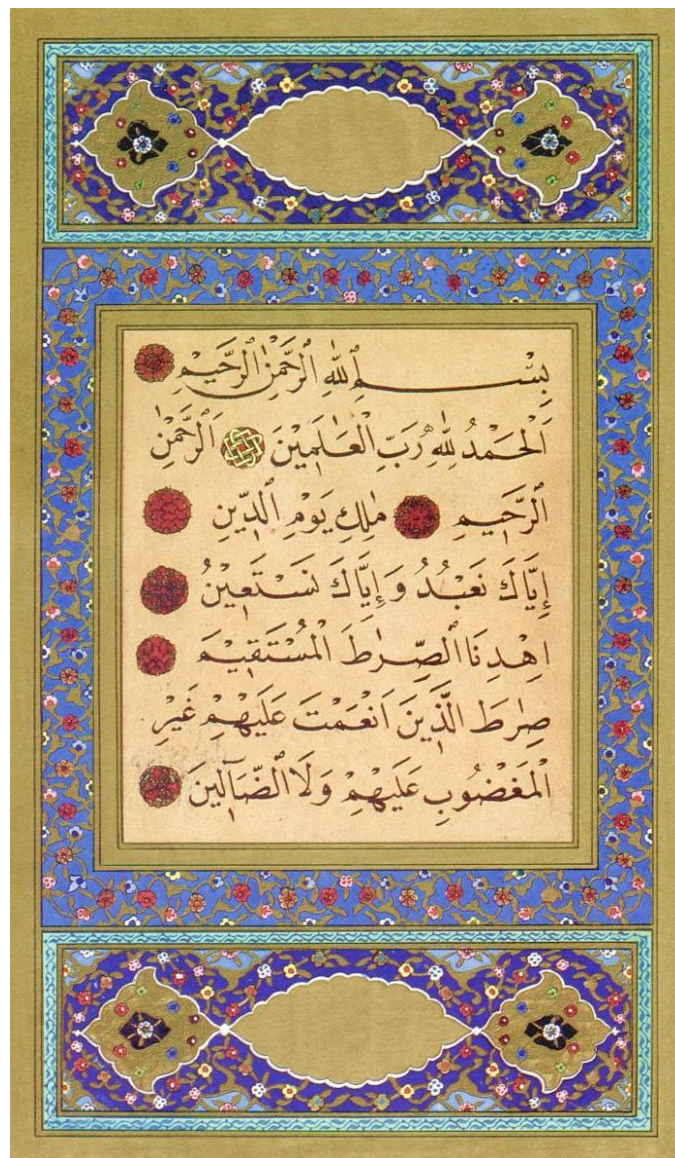 بِسْمِ ٱللّٰهِ ٱلرَّحْمٰنِ ٱلرَّحِيمِ
اَلْحَمْدُ لِلّٰهِ رَبِّ الْعَالَمِينَ اَلرَّحْمٰنِ
الرَّحِيمِ مٰلِكِ يَوْمِ الدِّينِ
إِيَّاكَ نَعْبُدُ وَإِيَّاكَ نَسْتَعِينُ
اِهْدِنَا الصِّرٰطَ الْمُسْتَقِيمَ
صِرٰطَ الَّذِينَ اَنْعَمْتَ عَلَيْهِمْ غَيْرِ
الْمَغْضُوبِ عَلَيْهِمْ وَلَا الضَّآلِّينَ